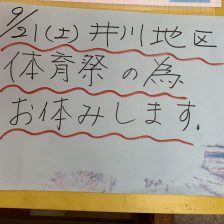 9/21(土)井川地区
体育祭の為、
お休みします。